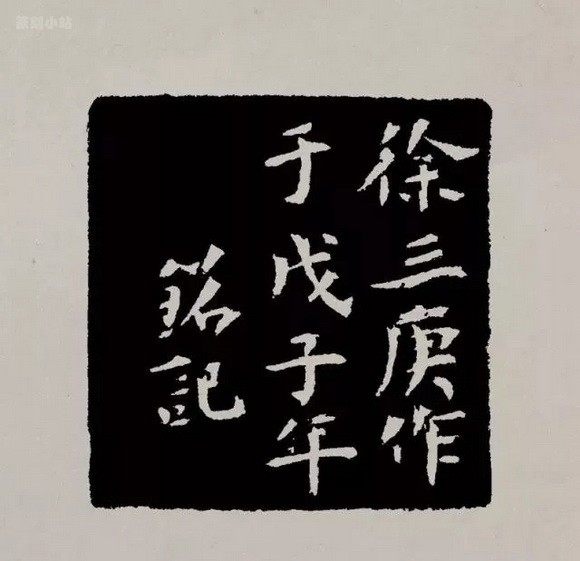 徐三庚作
于戊子年
銘記
篆刻小站